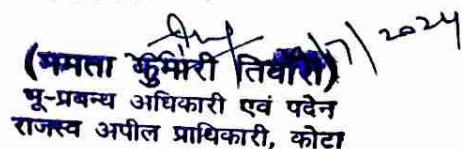 7/2024
(ममता कुमारी तिवारी)
भू-प्रबन्ध अधिकारी एवं पदेन
राजस्व अपील प्राधिकारी, कोटा